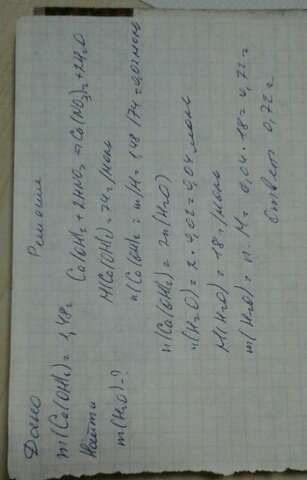 Дано
m(Ca(OH)₂) = 1,48г
Найти
m(H₂O)-?
Решение
Ca(OH)₂ + 2HNO₃ → Ca(NO₃)₂ + 2H₂O
M(Ca(OH)₂) = 74 г/моль
n(Ca(OH)₂ = m/M = 1,48/74 = 0,02 моль
n(Ca(OH)₂) = 2n(H₂O)
n(H₂O) = 2 · 0,02 = 0,04 моль
M(H₂O) = 18 г/моль
m(H₂O) = n · M = 0,04 · 18 = 0,72 г
Ответ 0,72 г